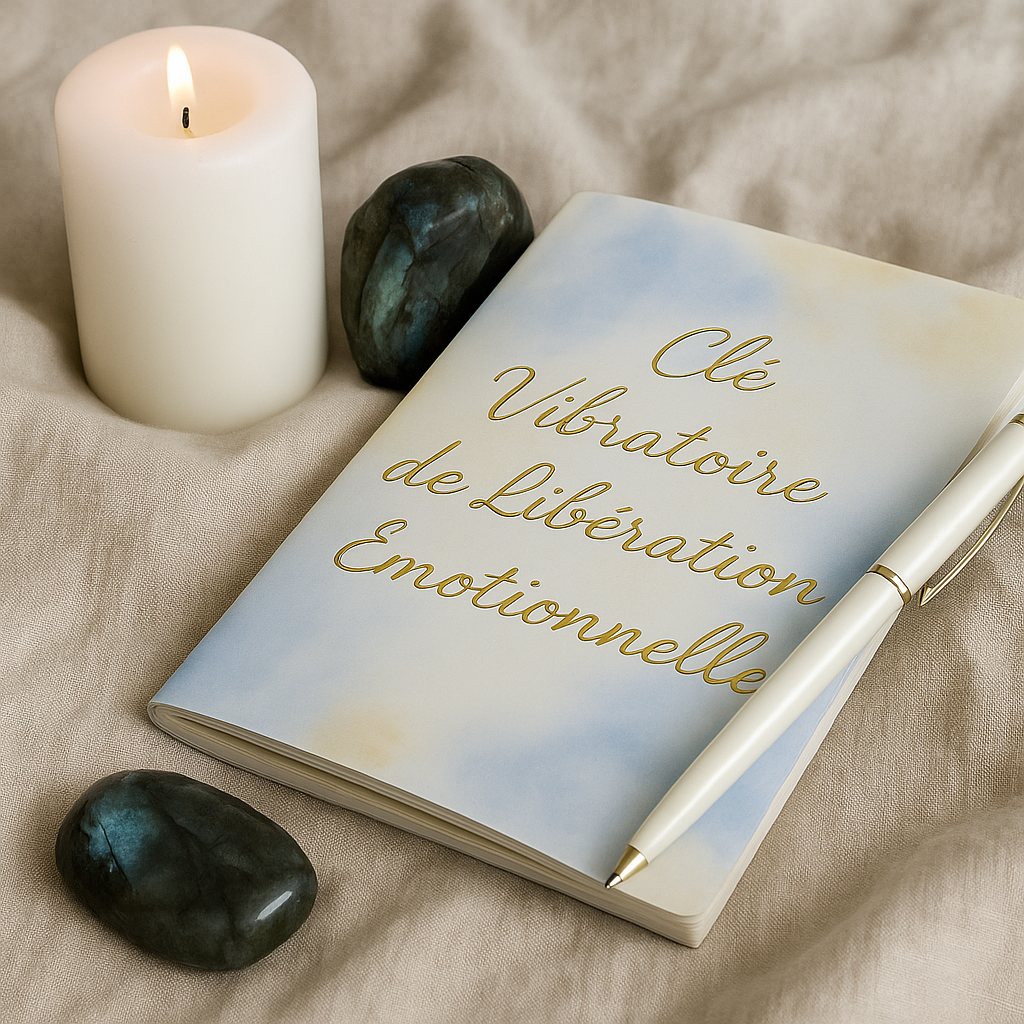 Clé
Vibratoire
de Libération
Émotionnelle